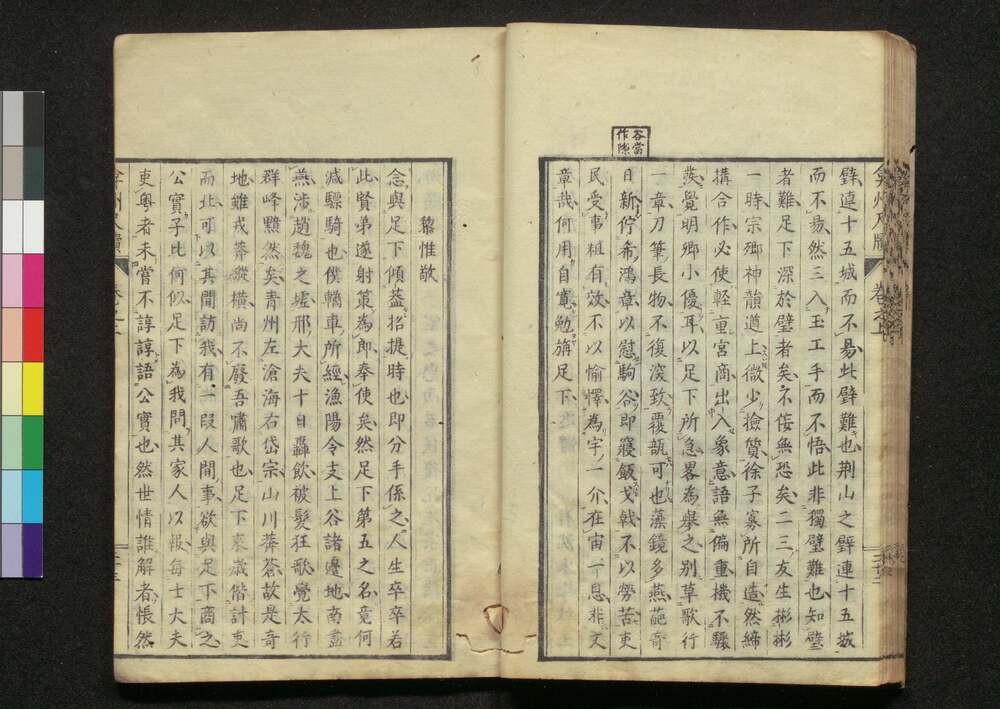 谷當
作陳
璧連十五城而不易此璧難也荆山之璧連十五城
而不易然三入玉工手而不悟此非獨璧難也知璧
者難足下深於璧者矣不佞無恐矣二三友生彬彬
一時宗卿神韻遒上微少撿質徐子寡所自造然締
搆合作必使輕重宮商出入象意語無偏重機不驟
羨覺明卿小優耳以足下所急畧為舉之別草歌行
一章刀筆長物不復滾致覆瓿可也藻鏡多燕葩奇
日新佇希鴻章以慰駒谷即寢飯戈戟不以勞苦吏
民受事粗有效不以愉懌為字一介在宙一息非文
章哉何用自寬勉旃足下
黎惟敬
念與足下傾葢招提時也即分手係之人生卒卒若
此賢弟遂射策為郎奉使矣然足下第五之名竟何
减驃騎也僕轓車所經漁陽令支上谷諸邊地南盡
燕涉趙魏之墟邢大夫十日轟飲被髮狂歌覺太行
群峰黯然矣青州左滄海右岱宗山川莽蒼故是奇
地雖戎莽縱橫尚不廢吾嘯歌也足下秦歲偕計吏
而北可以其間訪我有一段人間事欲與足下商之
公實子比何似足下為我問其家人以報每士大夫
吏粤者未嘗不諄諄語公實也然世情誰解者悵然
弇州尺牘
卷之
二十三